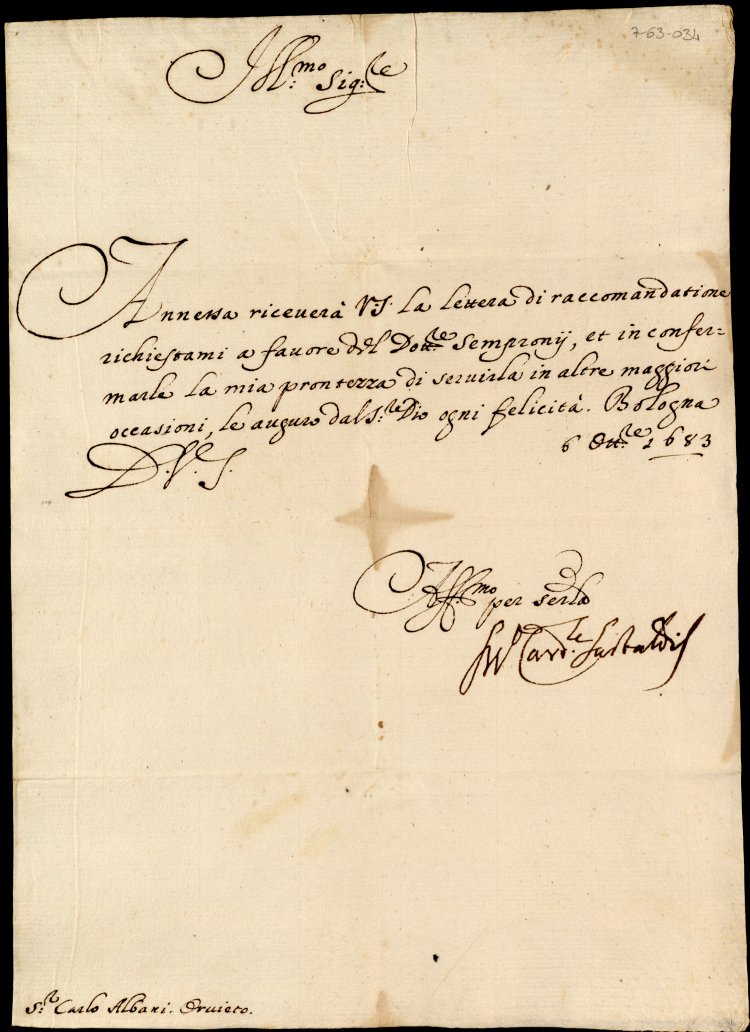 7-63-034
Ill:mo Sig:re
Annessa riceuerà V.S. la lettera di raccomandatione
richiestami a fauore del Dott:re Sempronij, et in confer=
marle la mia prontezza di seruirla in altre maggiori
occasioni, le auguro dal S:re Dio ogni felicità. Bologna
6 Ott:re 1683
D. V. S.
Aff:mo per serla
Card:le Gastaldi
S:r Carlo Albani. Oruieto.